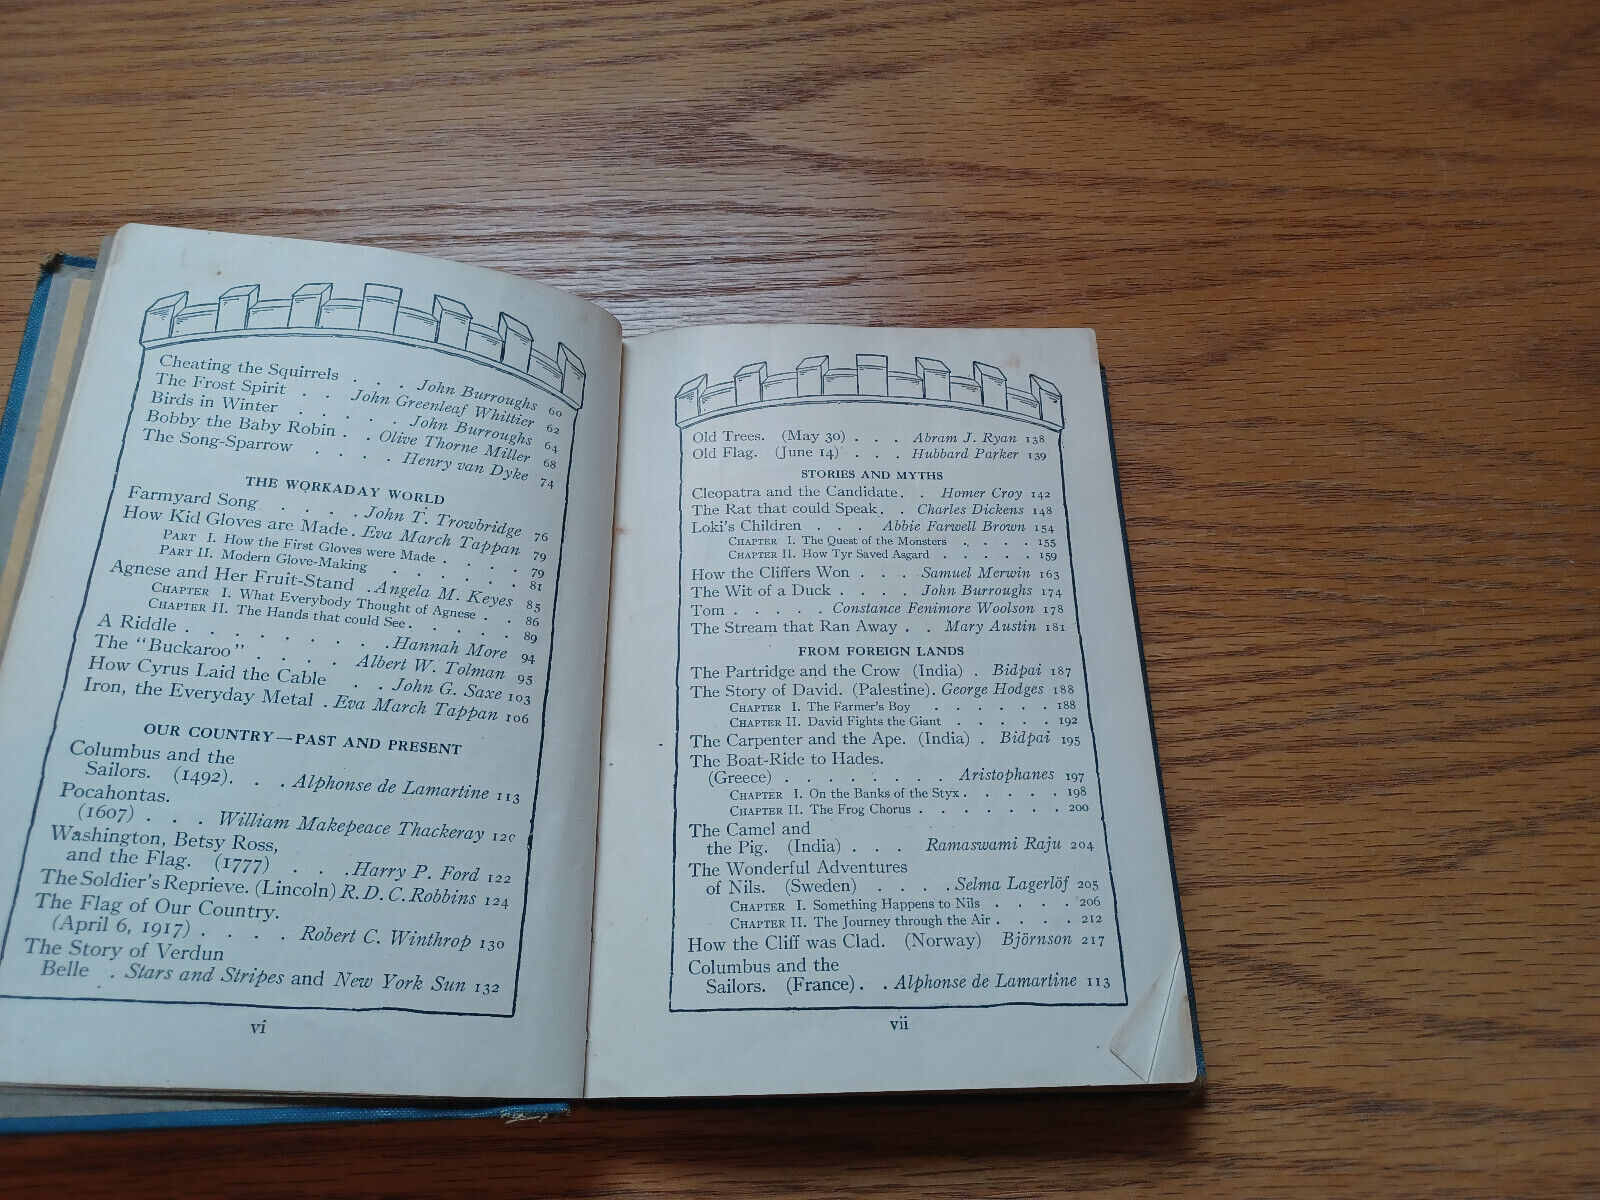 Cheating the Squirrels . . . John Burroughs 60
The Frost Spirit . . John Greenleaf Whittier 62
Birds in Winter . . . . . John Burroughs 64
Bobby the Baby Robin . . Olive Thorne Miller 68
The Song-Sparrow . . . . Henry van Dyke 74
THE WORKADAY WORLD
Farmyard Song . . . . John T. Trowbridge 76
How Kid Gloves are Made . Eva March Tappan 79
PART I. How the First Gloves were Made . . . . 79
PART II. Modern Glove-Making . . . . . . 81
Agnese and Her Fruit-Stand . Angela M. Keyes 85
CHAPTER I. What Everybody Thought of Agnese . . 86
CHAPTER II. The Hands that could See . . . . . 89
A Riddle . . . . . . . . Hannah More 94
The "Buckaroo" . . . . Albert W. Tolman 95
How Cyrus Laid the Cable . . John G. Saxe 103
Iron, the Everyday Metal . Eva March Tappan 106
OUR COUNTRY—PAST AND PRESENT
Columbus and the
Sailors. (1492). . . Alphonse de Lamartine 113
Pocahontas.
(1607) . . . William Makepeace Thackeray 120
Washington, Betsy Ross,
and the Flag. (1777) . . . Harry P. Ford 122
The Soldier's Reprieve. (Lincoln) R. D. C. Robbins 124
The Flag of Our Country.
(April 6, 1917) . . . . Robert C. Winthrop 130
The Story of Verdun
Belle . Stars and Stripes and New York Sun 132
vi
Old Trees. (May 30) . . . Abram J. Ryan 138
Old Flag. (June 14) . . . Hubbard Parker 139
STORIES AND MYTHS
Cleopatra and the Candidate . . Homer Croy 142
The Rat that could Speak . . Charles Dickens 148
Loki's Children . . . Abbie Farwell Brown 154
CHAPTER I. The Quest of the Monsters . . . . 155
CHAPTER II. How Tyr Saved Asgard . . . . . 159
How the Cliffers Won . . . Samuel Merwin 163
The Wit of a Duck . . . . John Burroughs 174
Tom . . . . . Constance Fenimore Woolson 178
The Stream that Ran Away . . Mary Austin 181
FROM FOREIGN LANDS
The Partridge and the Crow (India) . Bidpai 187
The Story of David. (Palestine). George Hodges 188
CHAPTER I. The Farmer's Boy . . . . . . 188
CHAPTER II. David Fights the Giant . . . . . 192
The Carpenter and the Ape. (India) . Bidpai 195
The Boat-Ride to Hades.
(Greece) . . . . . . . . Aristophanes 197
CHAPTER I. On the Banks of the Styx . . . . . 198
CHAPTER II. The Frog Chorus . . . . . . . 200
The Camel and
the Pig. (India) . . . Ramaswami Raju 204
The Wonderful Adventures
of Nils. (Sweden) . . . . Selma Lagerlöf 205
CHAPTER I. Something Happens to Nils . . . . 206
CHAPTER II. The Journey through the Air . . . . 212
How the Cliff was Clad. (Norway) Björnson 217
Columbus and the
Sailors. (France) . . Alphonse de Lamartine 113
vii